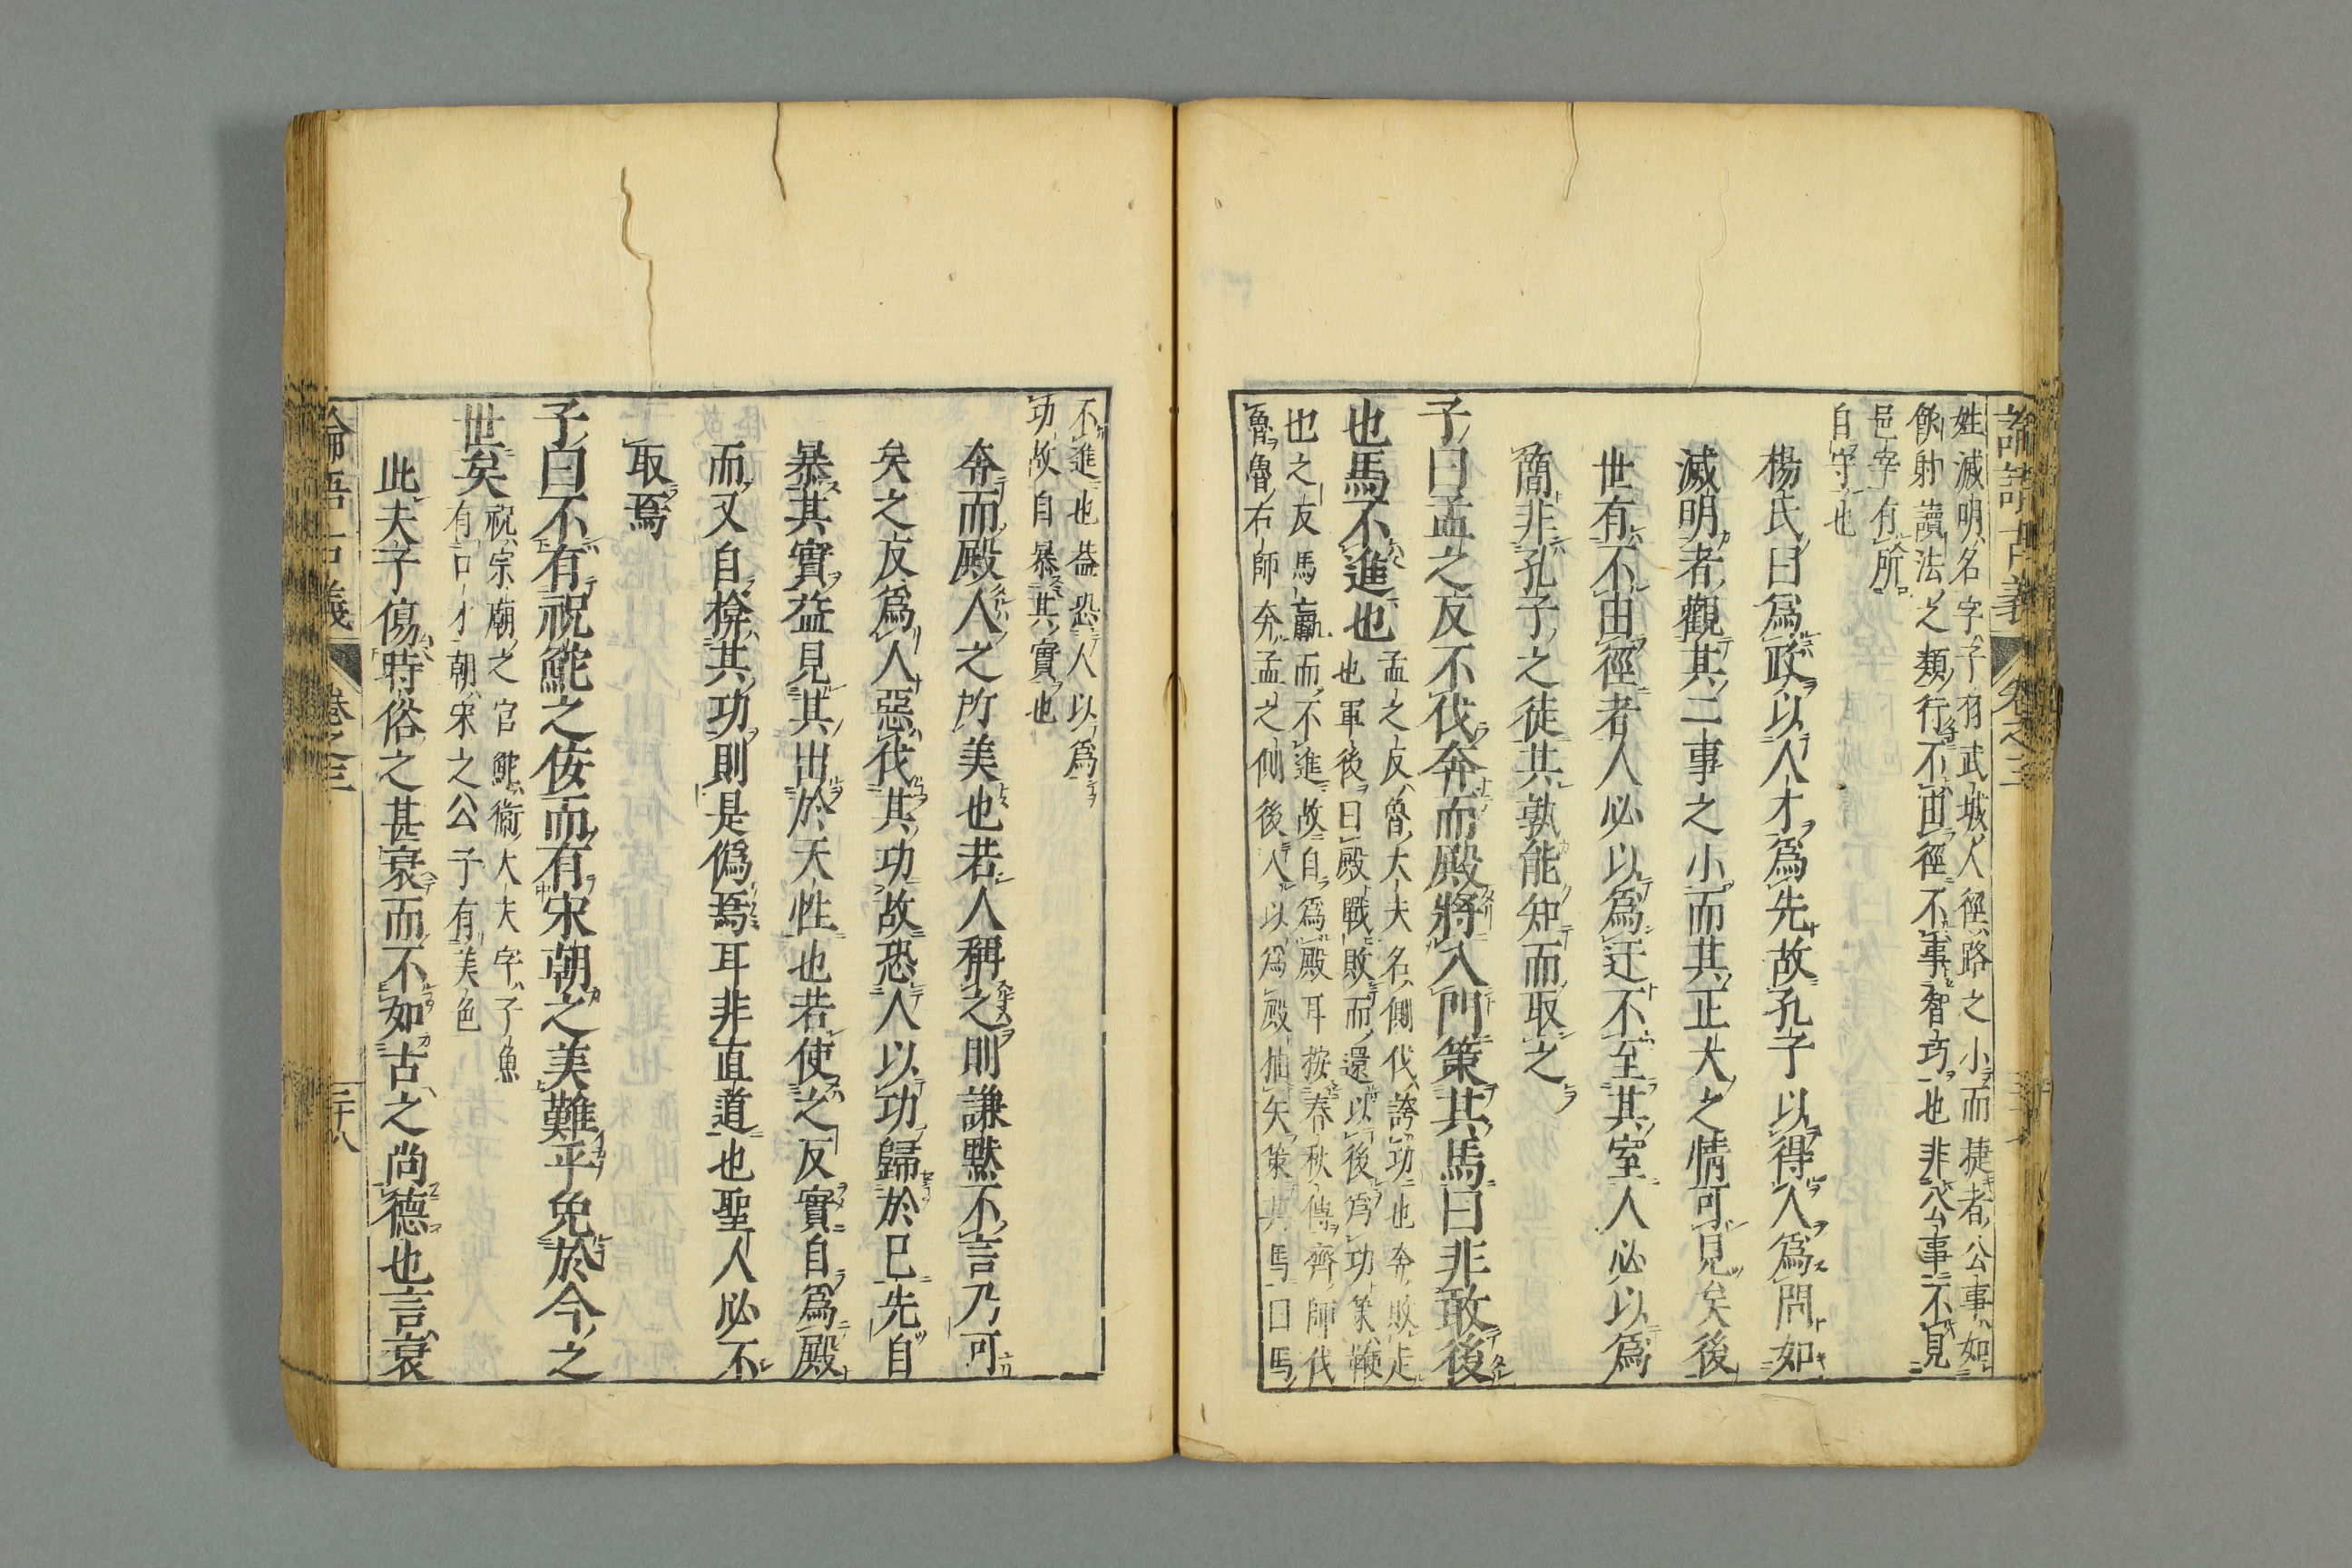 論語古義 卷之三
姓滅明名字子有武城人徑路之小而捷者公事如
飮射讀法之類行不由徑不事智巧也非公事不見
邑宰有所
自守也
楊氏曰爲政以人才爲先故孔子以得人爲問如
滅明者觀其二事之小而其正大之情可見矣後
世有不由徑者人必以爲迂不至其室人必以爲
簡非孔子之徒其孰能知而取之
子曰孟之反不伐奔而殿將入門策其馬曰非敢後
也馬不進也
孟之反魯大夫名側伐誇功也奔敗走
也軍後曰殿戰敗而還以後爲功策鞭
也之反馬羸而不進故自爲殿耳按春秋傳齊師伐
魯魯右師奔孟之側後入以爲殿抽矢策其馬曰馬
不進也益恐人以爲
功故自暴其實也
奔而殿人之所美也若人稱之則謙默不言乃可
矣之反爲人惡伐其功故恐人以功歸於已先自
暴其實益見其出於天性也若使之反實自爲殿
而又自揜其功則是僞焉耳非直道也聖人必不
取焉
子曰不有祝鮀之佞而有宋朝之美難乎免於今之
世矣
祝宗廟之官鮀衞大夫字子魚
有口才朝宋之公子有美色
此夫子傷時俗之甚衰而不如古之尚德也言衰
論語古義 卷之三 二十八